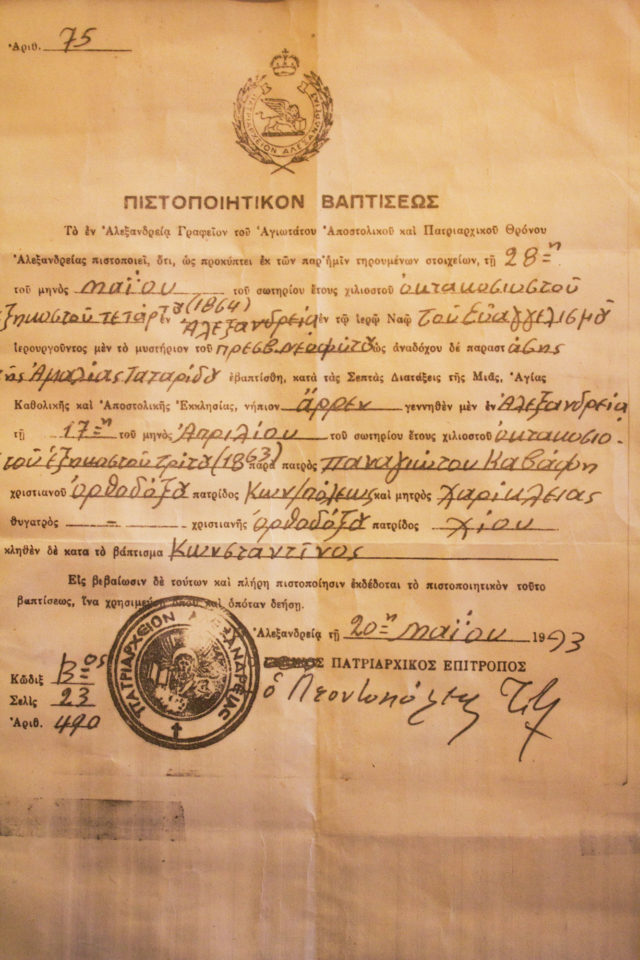 Ἀριθ. 75
ΠΑΤΡΙΑΡΧΕΙΟΝ ΑΛΕΞΑΝΔΡΕΙΑΣ
ΠΙΣΤΟΠΟΙΗΤΙΚΟΝ ΒΑΠΤΙΣΕΩΣ
Τὸ ἐν Ἀλεξανδρείᾳ Γραφεῖον τοῦ Ἁγιωτάτου Ἀποστολικοῦ καὶ Πατριαρχικοῦ Θρόνου
Ἀλεξανδρείας πιστοποιεῖ, ὅτι, ὡς προκύπτει ἐκ τῶν παρ' ἡμῖν τηρουμένων στοιχείων, τῇ 28ῃ
τοῦ μηνὸς Μαΐου τοῦ σωτηρίου ἔτους χιλιοστοῦ ὀκτακοσιοστοῦ
ἑξηκοστοῦ τετάρτου (1864) ἐν Ἀλεξανδρείᾳ ἐν τῷ ἱερῷ Ναῷ τοῦ Εὐαγγελισμοῦ
ἱερουργοῦντος μὲν τὸ μυστήριον τοῦ πρεσβ. Νεοφύτου ὡς ἀναδόχου δέ παραστάσης
τῆς Ἀμαλίας Ταταρίδου ἐβαπτίσθη, κατὰ τὰς Σεπτὰς Διατάξεις τῆς Μιᾶς, Ἁγίας
Καθολικῆς καὶ Ἀποστολικῆς Ἐκκλησίας, νήπιον ἄρρεν γεννηθὲν μὲν ἐν Ἀλεξανδρείᾳ
τῇ 17ῃ τοῦ μηνὸς Ἀπριλίου τοῦ σωτηρίου ἔτους χιλιοστοῦ ὀκτακοσιο-
στοῦ ἑξηκοστοῦ τρίτου (1863) παρὰ πατρὸς Παναγιώτου Καβάφη
χριστιανοῦ ὀρθοδόξου πατρίδος Κων/πόλεως καὶ μητρὸς Χαρικλείας
θυγατρὸς - χριστιανῆς ὀρθοδόξου πατρίδος Χίου
κληθὲν δὲ κατα τὸ βάπτισμα Κωνσταντῖνος
Εἰς βεβαίωσιν δὲ τούτων καὶ πλήρη πιστοποίησιν ἐκδέδοται τὸ πιστοποιητικὸν τοῦτο
βαπτίσεως, ἵνα χρησιμεύῃ ὅπου καὶ ὁπόταν δεήσῃ.
Ἀλεξανδρείᾳ τῇ 20ῃ Μαΐου 1993
ΠΑΤΡΙΑΡΧΙΚΟΣ ΕΠΙΤΡΟΠΟΣ
ὁ Λεοντοπόλεως
Κῶδιξ Β ος
Σελὶς 23
Ἀριθ. 490
ΠΑΤΡΙΑΡΧΕΙΟΝ ΑΛΕΞΑΝΔΡΕΙΑΣ